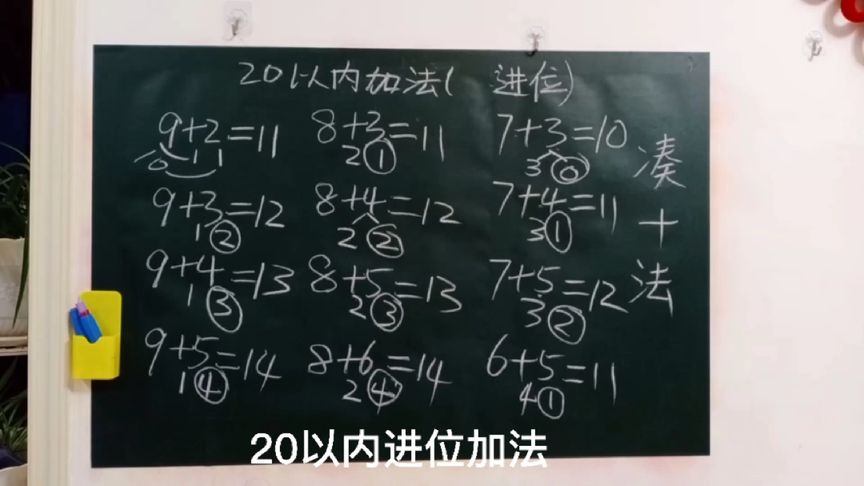 20以内加法( 进位)
9+2=11 8+3=11 7+3=10
10 1 1 2 ① 3 ⓪
9+3=12 8+4=12 7+4=11
1 ② 2 ② 3 ①
9+4=13 8+5=13 7+5=12
1 ③ 2 ③ 3 ②
9+5=14 8+6=14 6+5=11
1 ④ 2 ④ 4 ①
凑十法
20以内进位加法